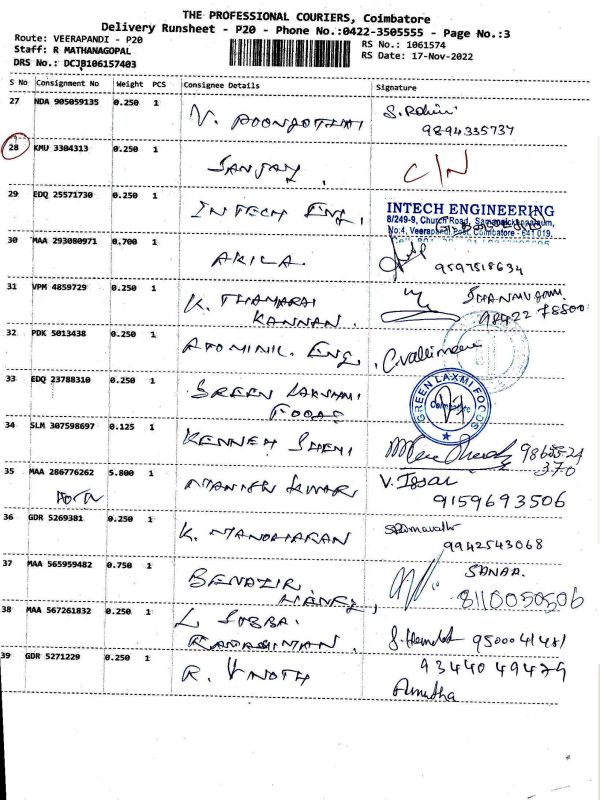 THE PROFESSIONAL COURIERS, Coimbatore
Delivery Runsheet - P20 - Phone No.:0422-3505555 - Page No.:3
Route: VEERAPANDI - P20
RS No.: 1061574
Staff: R MATHANAGOPAL
RS Date: 17-Nov-2022
DRS No.: DCJB106157403
S No Consignment No Weight PCS Consignee Details Signature
27 NDA 905059135 0.250 1
9894335737
28 KMU 3304313 0.250 1 SANJAY. C/N
29 EDQ 25571730 0.250 1 INTECH ENG,
INTECH ENGINEERING
8/249-9, Church Road,
No:4, Veerapandi Post, Coimbatore - 641 019.
30 MAA 293080971 0.700 1 AKILA.
9597518634
31 VPM 4859729 0.250 1 K. THAMARAI
KANNAN. SHANMUGAM.
98422 78800
32 PDK 5013438 0.250 1 ENG,
33 EDQ 23788310 0.250 1 GREEN LAXMI
FOODS
GREEN LAXMI FOODS
Coimbatore
34 SLM 307598697 0.125 1 KENNEH
370
35 MAA 286776262 5.800 1 MANISH KUMAR
9159693506
36 GDR 5269381 0.250 1 K. MANOHARAN
9942543068
37 MAA 565959482 0.750 1 BENAZIR
8110050506
38 MAA 567261832 0.250 1 L SUBBA.
39 GDR 5271229 0.250 1 R. VINOTH
9344049479
Amutha